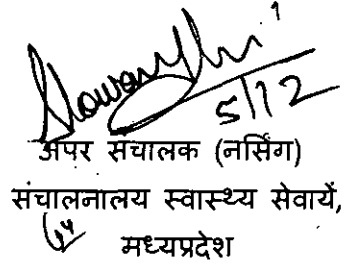 5/12
अपर संचालक (नर्सिंग)
संचालनालय स्वास्थ्य सेवायें,
मध्यप्रदेश